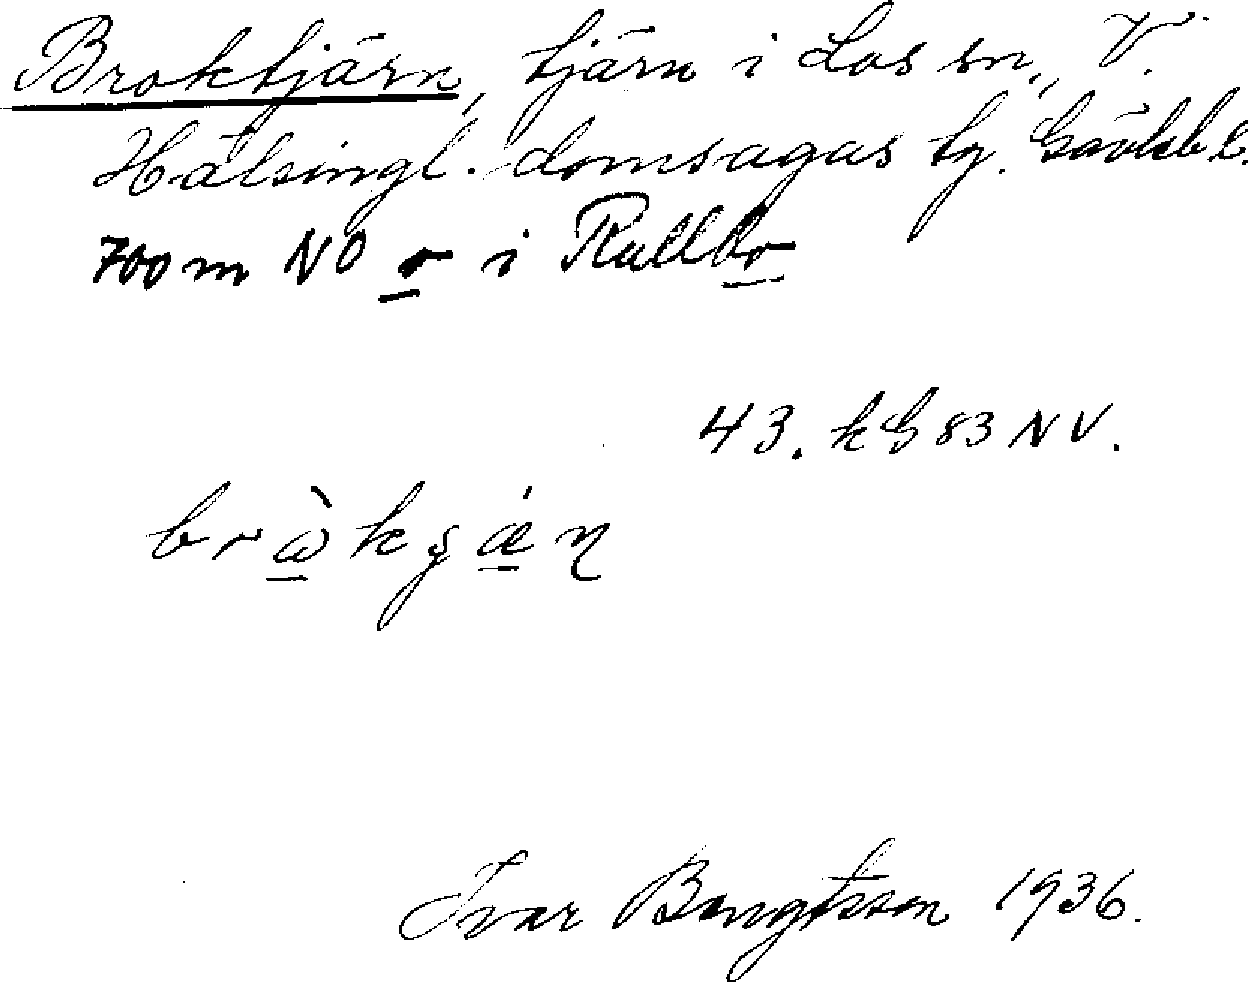 Broktjärn, tjärn i Los sn., V.
Hälsingl. domsagas tg. Gävleb l.
700 m NO o i Rullbo
43. kG 83 NV.
Ivar Bengtsson 1936.